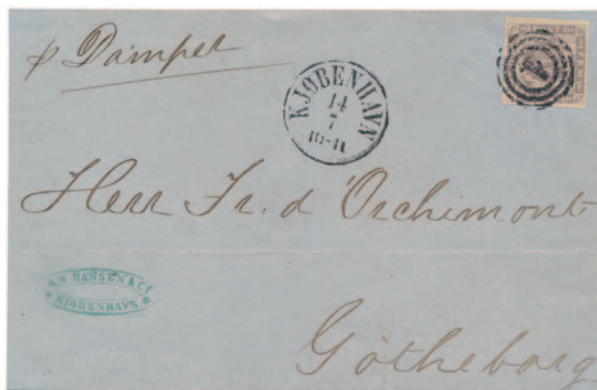 p Dampet
KJØBENHAVN
14
7
10-11
Herr Fr. d'Orchimont
A.N. HANSEN & Cº
KJØBENHAVN
Götheborg